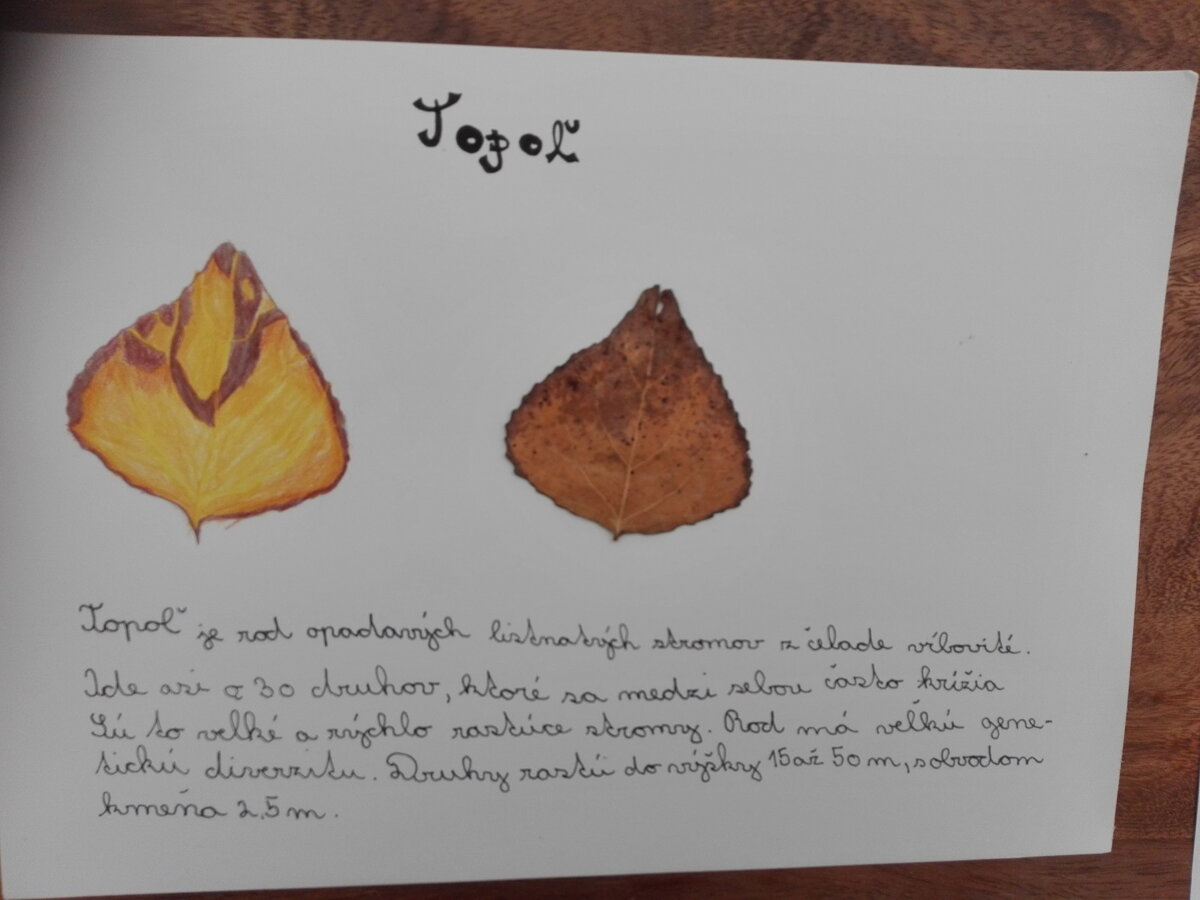 Topoľ
Topoľ je rod opadavých listnatých stromov z čelade vŕbovité.
Ide asi o 30 druhov, ktoré sa medzi sebou často krížia
Sú to velké a rýchlo rastúce stromy. Rod má veľkú gene-
tickú diverzitu. Druhy rastú do výšky 15 až 50 m, s obvodom
kmeňa 2,5 m.